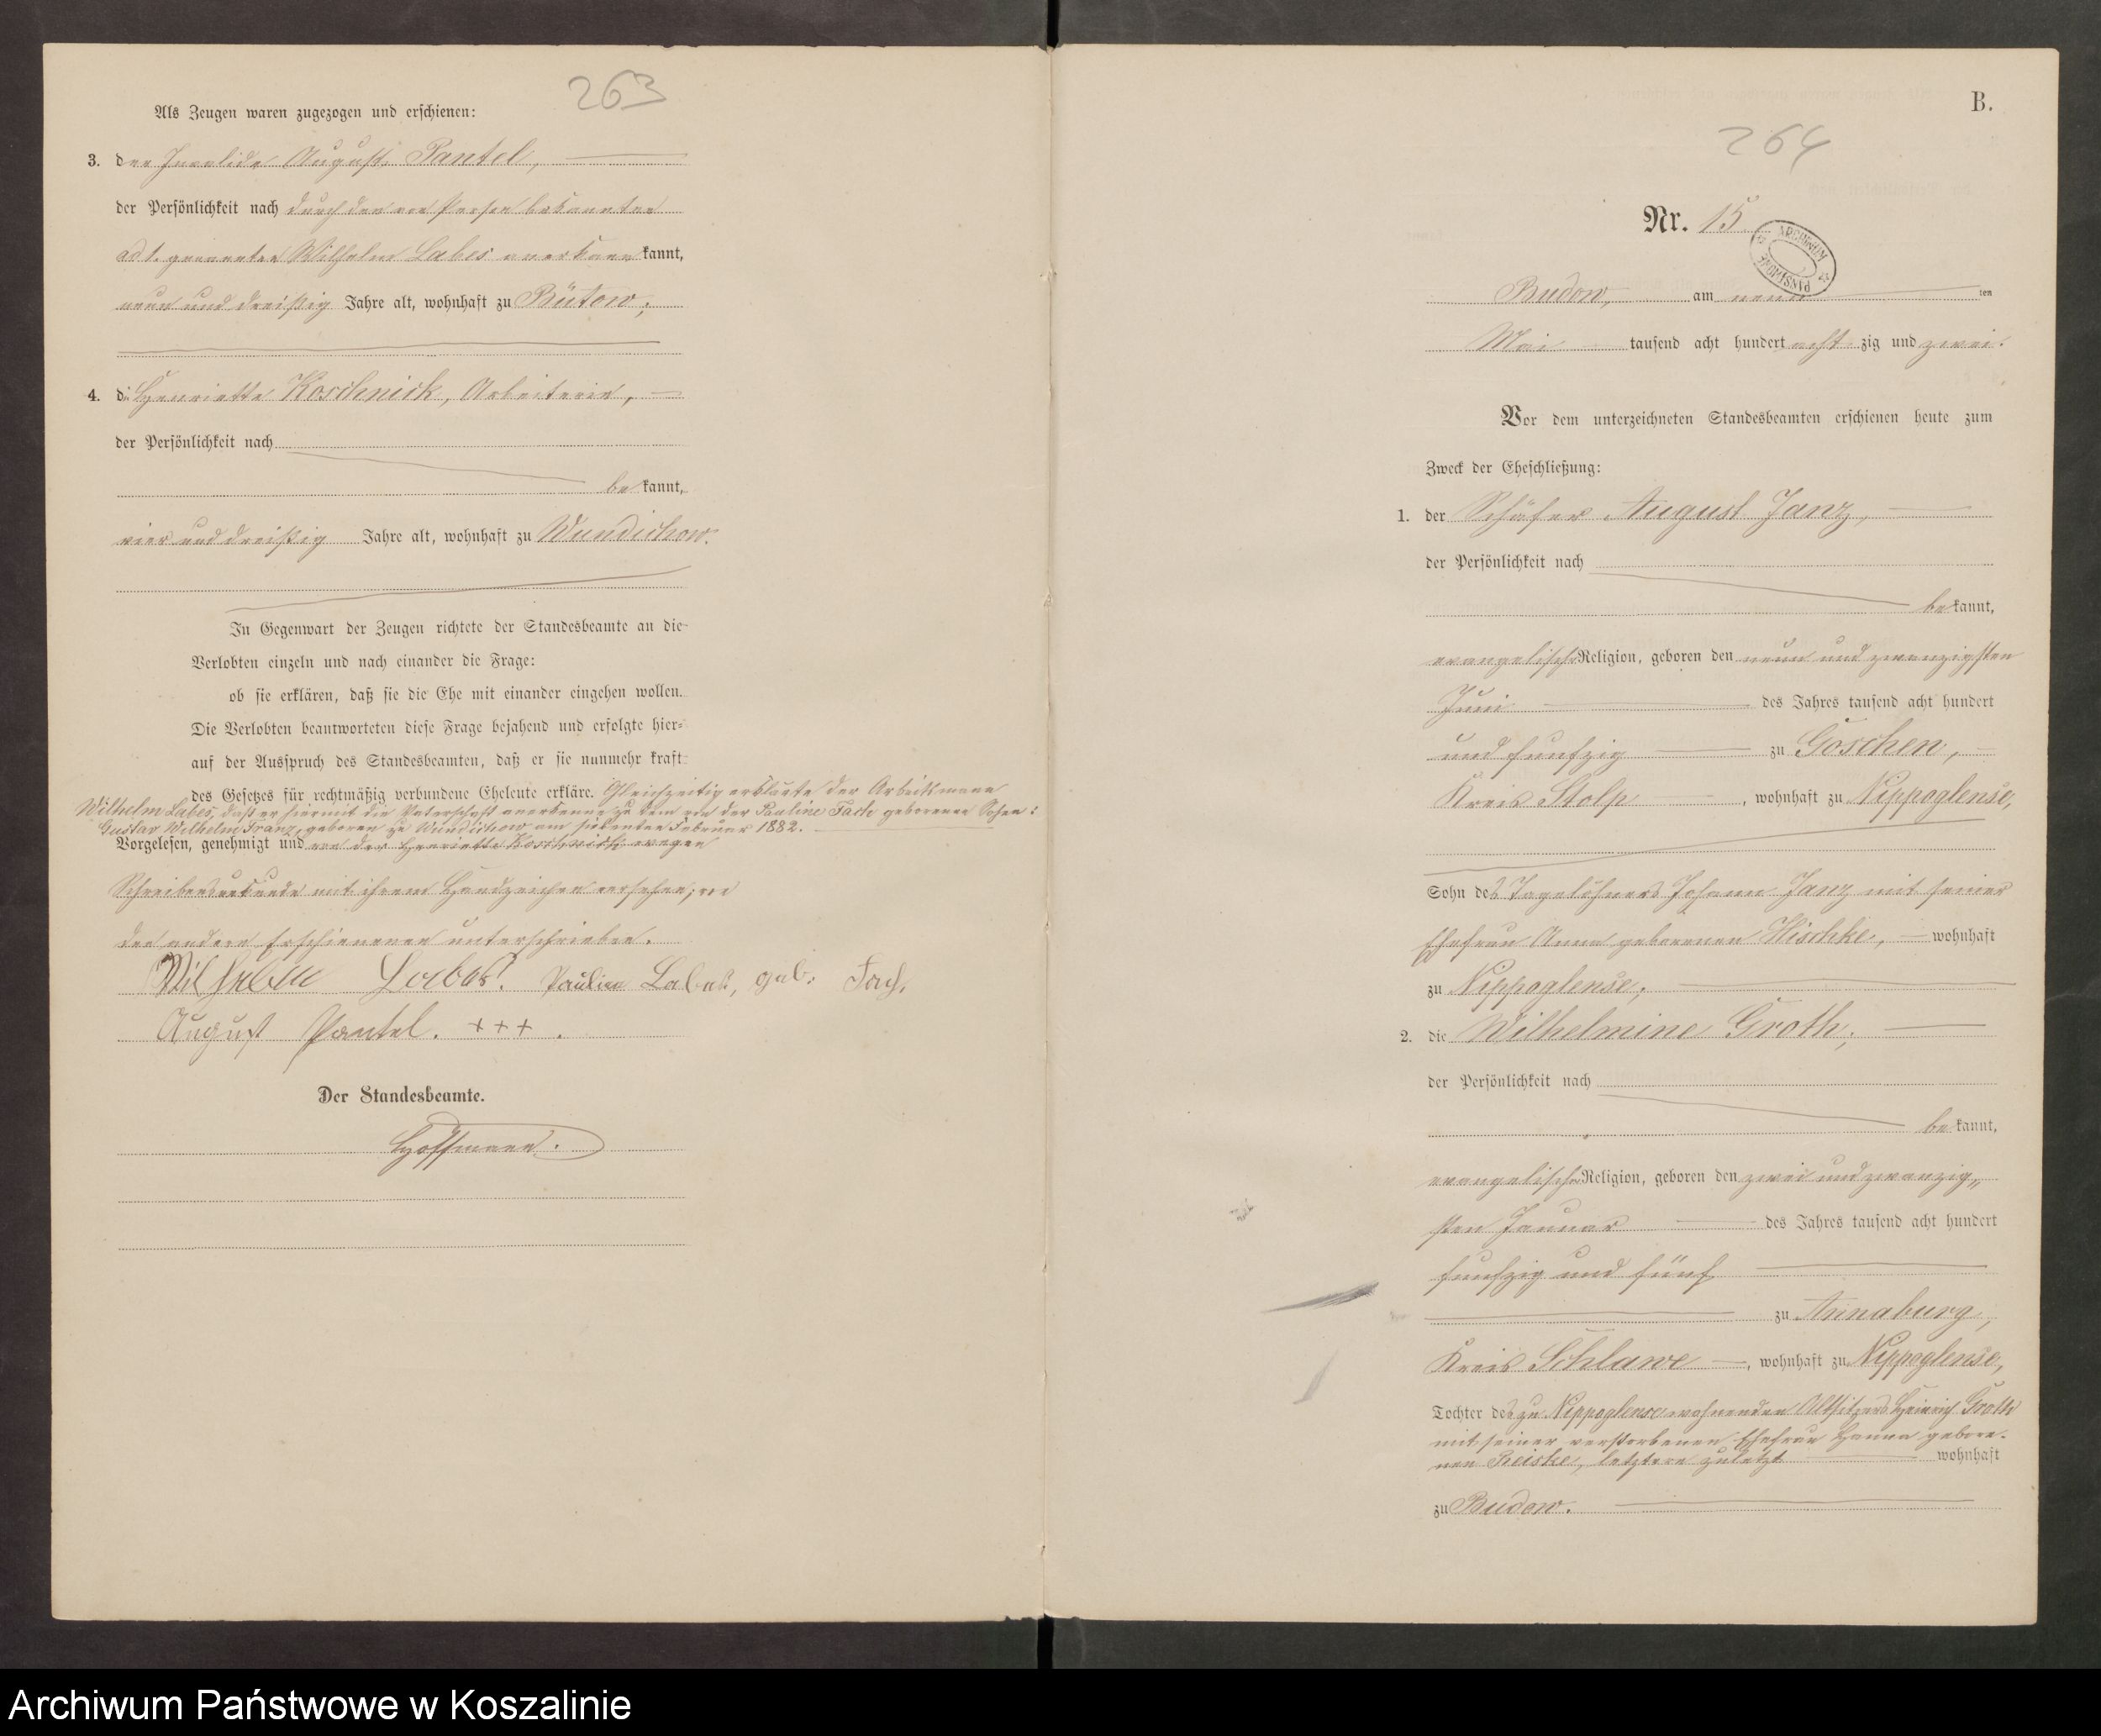 263
Als Zeugen waren zugezogen und erschienen:
3. der Invalide August Pantel,
der Persönlichkeit nach durch den von Person bekannten
ad 1. genannten Wilhelm Labes anerkannt,
neun und dreißig Jahre alt, wohnhaft zu Bütow;
4. die Henriette Koschnick, Arbeiterin,
der Persönlichkeit nach
bekannt,
vier und dreißig Jahre alt, wohnhaft zu Wundichow.
In Gegenwart der Zeugen richtete der Standesbeamte an die
Verlobten einzeln und nach einander die Frage:
ob sie erklären, daß sie die Ehe mit einander eingehen wollen.
Die Verlobten beantworteten diese Frage bejahend und erfolgte hier-
auf der Ausspruch des Standesbeamten, daß er sie nunmehr kraft
des Gesetzes für rechtmäßig verbundene Eheleute erkläre. Gleichzeitig erklärte der Arbeitsmann
Wilhelm Labes, daß er hiermit die Vaterschaft anerkenne zu dem von der Pauline Fach geborenen Sohne:
Gustav Wilhelm Franz, geboren zu Wundichow am siebenten Februar 1882.
Vorgelesen, genehmigt und von der Henriette Koschnick wegen
Schreibensunkunde mit ihrem Handzeichen versehen, von
den andern Erschienenen unterschrieben.
Wilhelm Labes. Pauline Labes, geb: Fach.
August Pantel. +++.
Der Standesbeamte.
Hoffmann.
B.
264
Nr. 15
ARCHIWUM PAŃSTWOWE
Budow, am neunten
Mai tausend acht hundert achtzig und zwei.
Vor dem unterzeichneten Standesbeamten erschienen heute zum
Zweck der Eheschließung:
1. der Schäfer August Janz,
der Persönlichkeit nach
bekannt,
evangelischer Religion, geboren den neun und zwanzigsten
Juni des Jahres tausend acht hundert
und funfzig zu Goschen,
Kreis Stolp, wohnhaft zu Nippoglense,
Sohn des Tagelöhners Johann Janz mit seiner
Ehefrau Anna geborenen Mischke, wohnhaft
zu Nippoglense;
2. die Wilhelmine Groth,
der Persönlichkeit nach
bekannt,
evangelischer Religion, geboren den zwei und zwanzig„
sten Januar des Jahres tausend acht hundert
funfzig und fünf
zu Annaburg,
Kreis Schlawe, wohnhaft zu Nippoglense,
Tochter des zu Nippoglense wohnenden Altsitzers Heinrich Groth
mit seiner verstorbenen Ehefrau Hanna gebore-
nen Reiske, letztere zuletzt wohnhaft
zu Budow.
Archiwum Państwowe w Koszalinie